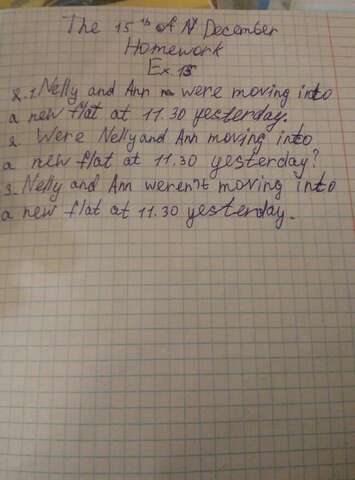 The 15th of December
Homework
Ex. 15
2. 1. Nelly and Ann were moving into
a new flat at 11.30 yesterday.
2. Were Nelly and Ann moving into
a new flat at 11.30 yesterday?
3. Nelly and Ann weren't moving into
a new flat at 11.30 yesterday.